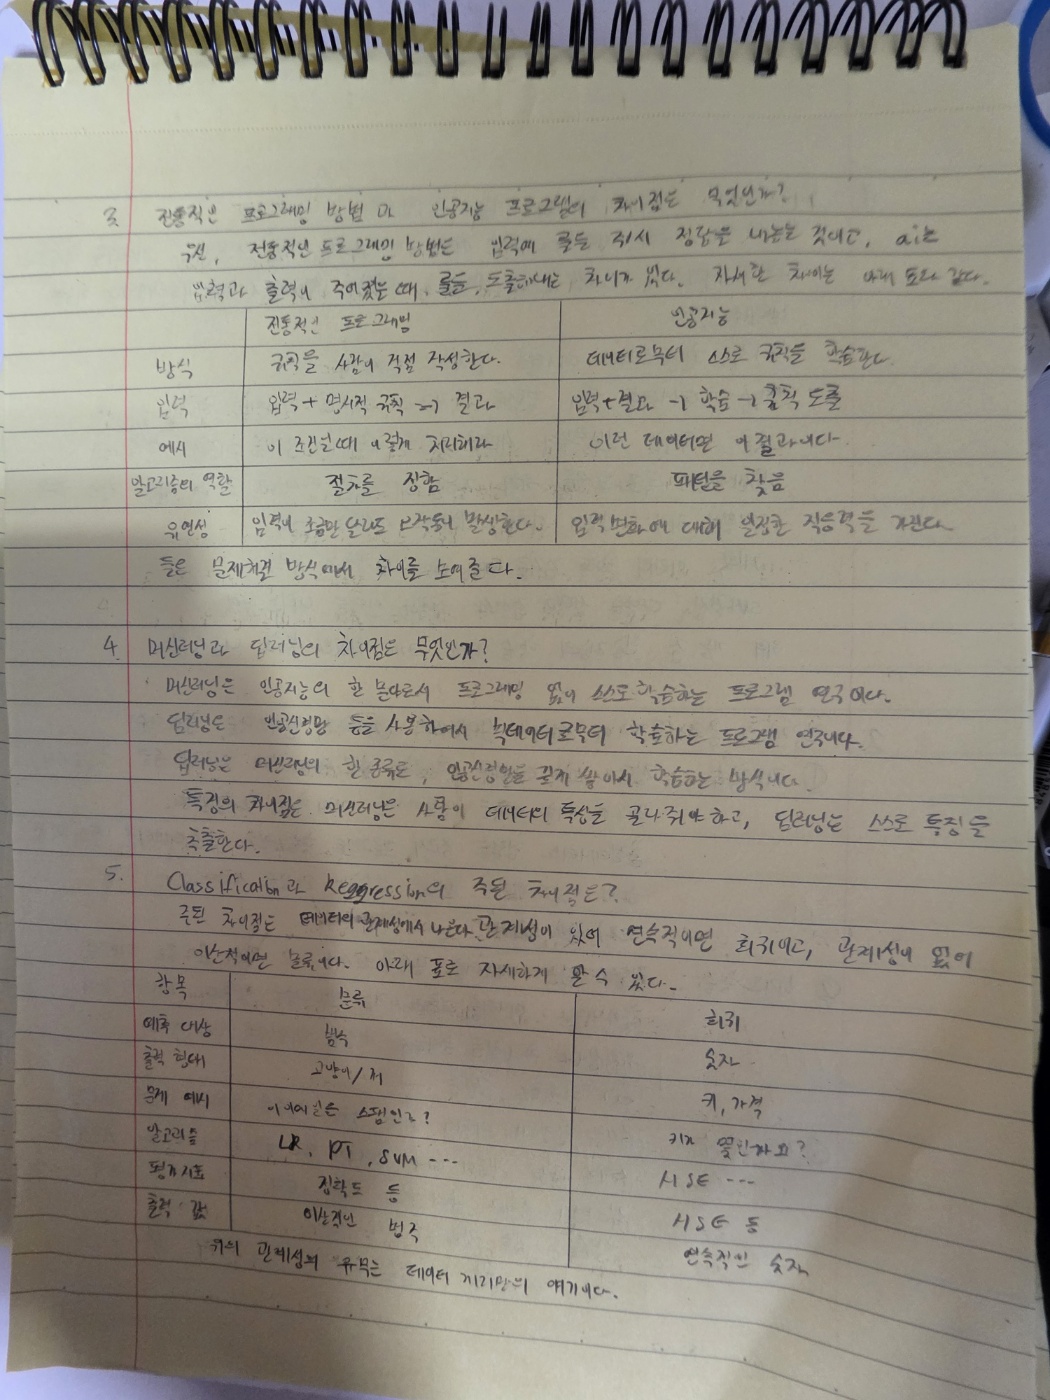 3. 전통적인 프로그래밍 방법과 인공지능 프로그램의 차이점은 무엇인가?
우선, 전통적인 프로그래밍 방법은 입력에 룰을 줘서 정답을 내놓는 것이고, ai는
입력과 출력이 주어졌을 때, 룰을 도출해내는 차이가 있다. 자세한 차이는 아래 표와 같다.
전통적인 프로그래밍 인공지능
방식 규칙을 사람이 직접 작성한다. 데이터로부터 스스로 규칙을 학습한다
입력 입력 + 명시적 규칙 → 결과 입력 + 결과 → 학습 → 규칙 도출
예시 이 조건일때 이렇게 처리해라 이런 데이터면 이 결과이다.
알고리즘의 역할 절차를 정함 패턴을 찾음
유연성 입력이 조금만 달라도 오작동이 발생한다. 입력 변화에 대해 일정한 적응력을 가진다
등은 문제해결 방식에서 차이를 보여준다.
4. 머신러닝과 딥러닝의 차이점은 무엇인가?
머신러닝은 인공지능의 한 분야로서 프로그래밍 없이 스스로 학습하는 프로그램 연구이다.
딥러닝은 인공신경망 등을 사용하여서 빅데이터로부터 학습하는 프로그램 연구이다.
딥러닝은 머신러닝의 한 종류로, 인공신경망을 깊게 쌓아서 학습하는 방식이다.
특징의 차이점은 머신러닝은 사람이 데이터의 특성을 골라줘야 하고, 딥러닝은 스스로 특징을
추출한다.
5. Classification과 Reggression의 주된 차이점은?
주된 차이점은 데이터의 관계성에서 나온다. 관계성이 있어 연속적이면 회귀이고, 관계성이 없어
이산적이면 분류이다. 아래 표로 자세하게 알 수 있다.
항목 분류 회귀
예측 대상 범주 숫자
출력 형태 고양이/개 키, 가격
문제 예시 이 메일은 스팸인가? 키가 몇인가요?
알고리즘 LR, DT, SVM ... MSE ...
평가지표 정확도 등 MSE 등
출력 값 이산적인 범주 연속적인 숫자
위의 관계성의 유무는 데이터 의 얘기이다.